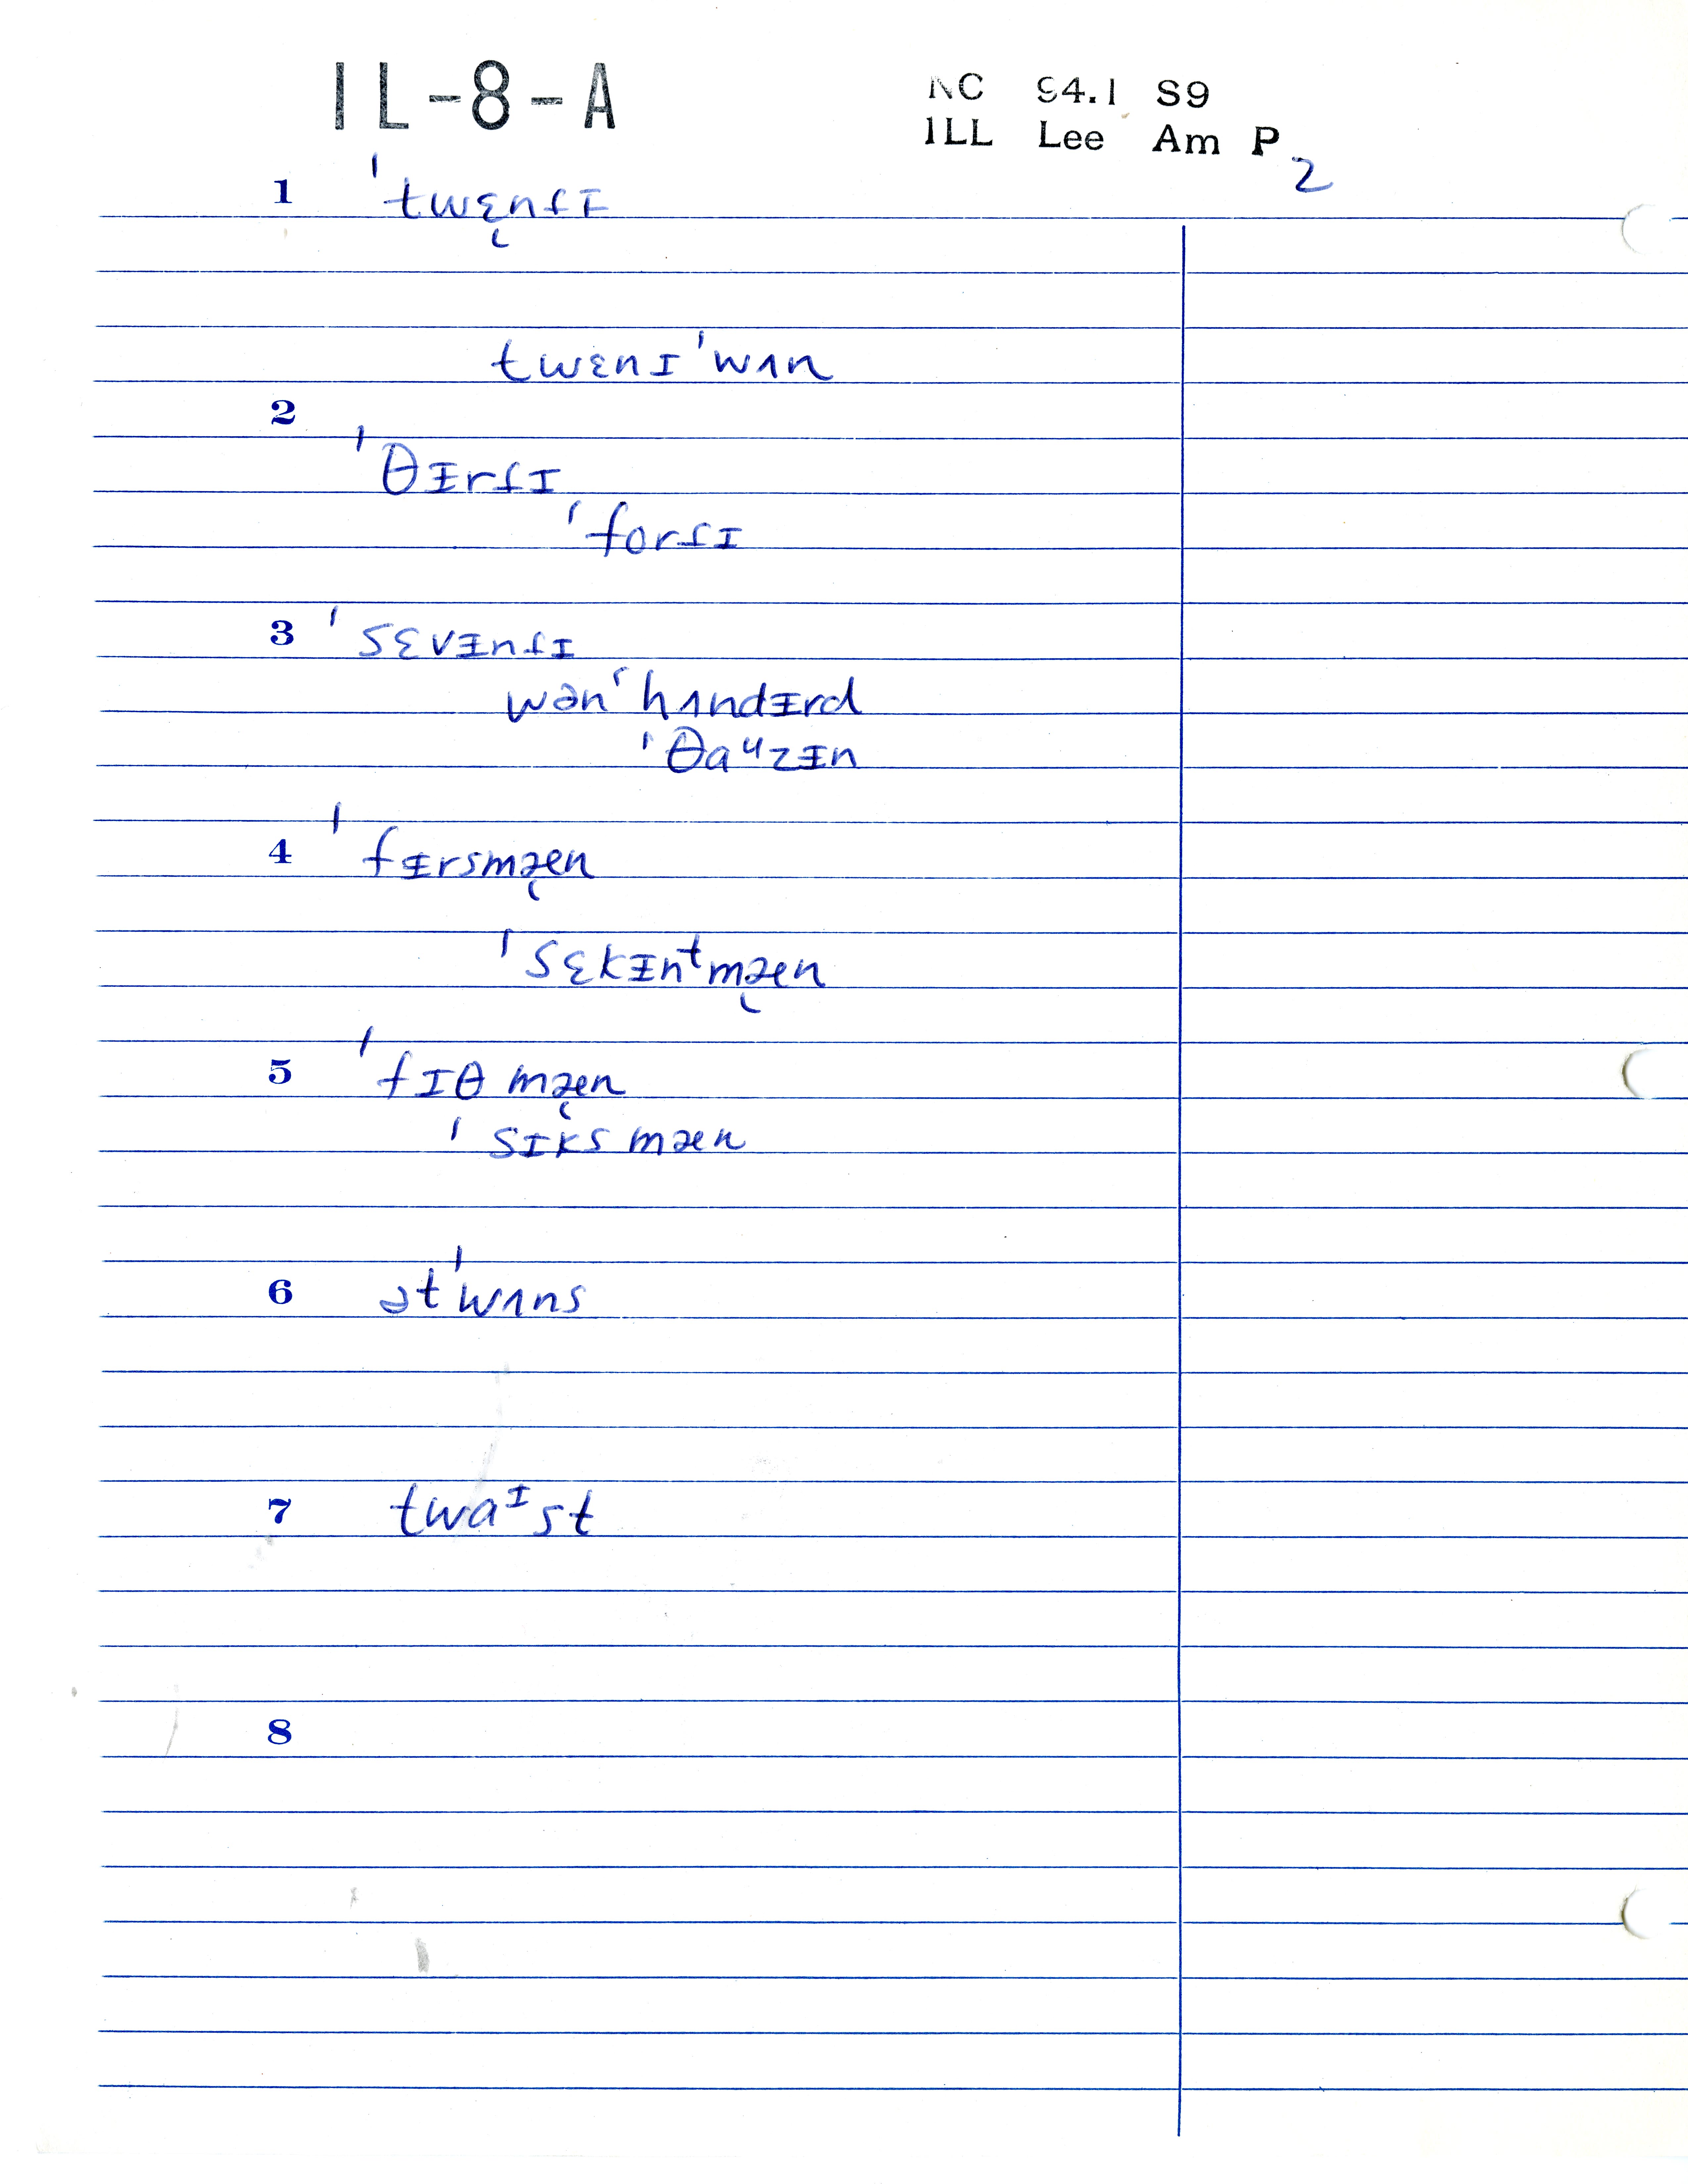 IL-8-A
NC 94.1 S9
ILL Lee Am P 2
1 ˈtwɛ̨nɾɪ
twɛnɪˈwʌn
2
ˈθɨrɾɪ
ˈforɾɪ
3 ˈsɛvɨnɾɪ
wənˈhʌndɨrd
ˈθaᶸzɨn
4 ˈfɨrsmæ̨n
ˈsɛkɨnᵗmæ̨n
5 ˈfɪθmæ̨n
ˈsɪksmæn
6 ətˈwʌns
7 twaᶦst
8